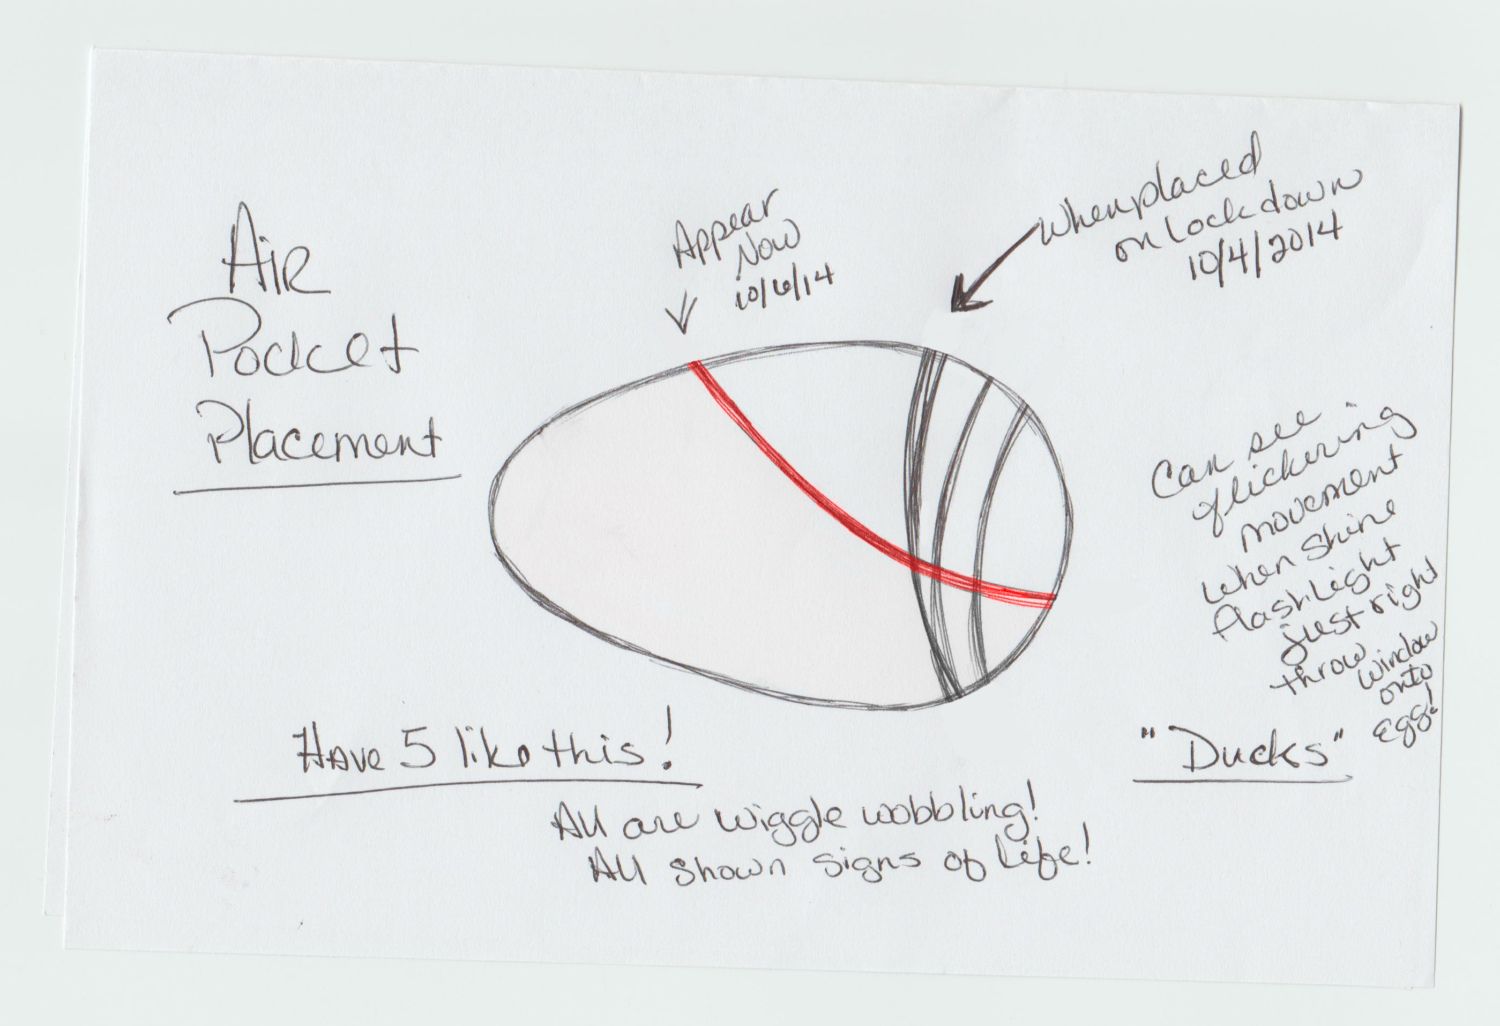 Air
Pocket
Placement
Appear
Now
10/6/14
When placed
on Lockdown
10/4/2014
Can see
flickering
movement
when shine
flashLight
just right
throw window
onto
Egg!
Have 5 like this!
"Ducks"
All are wiggle wobbling!
All shown signs of Life!